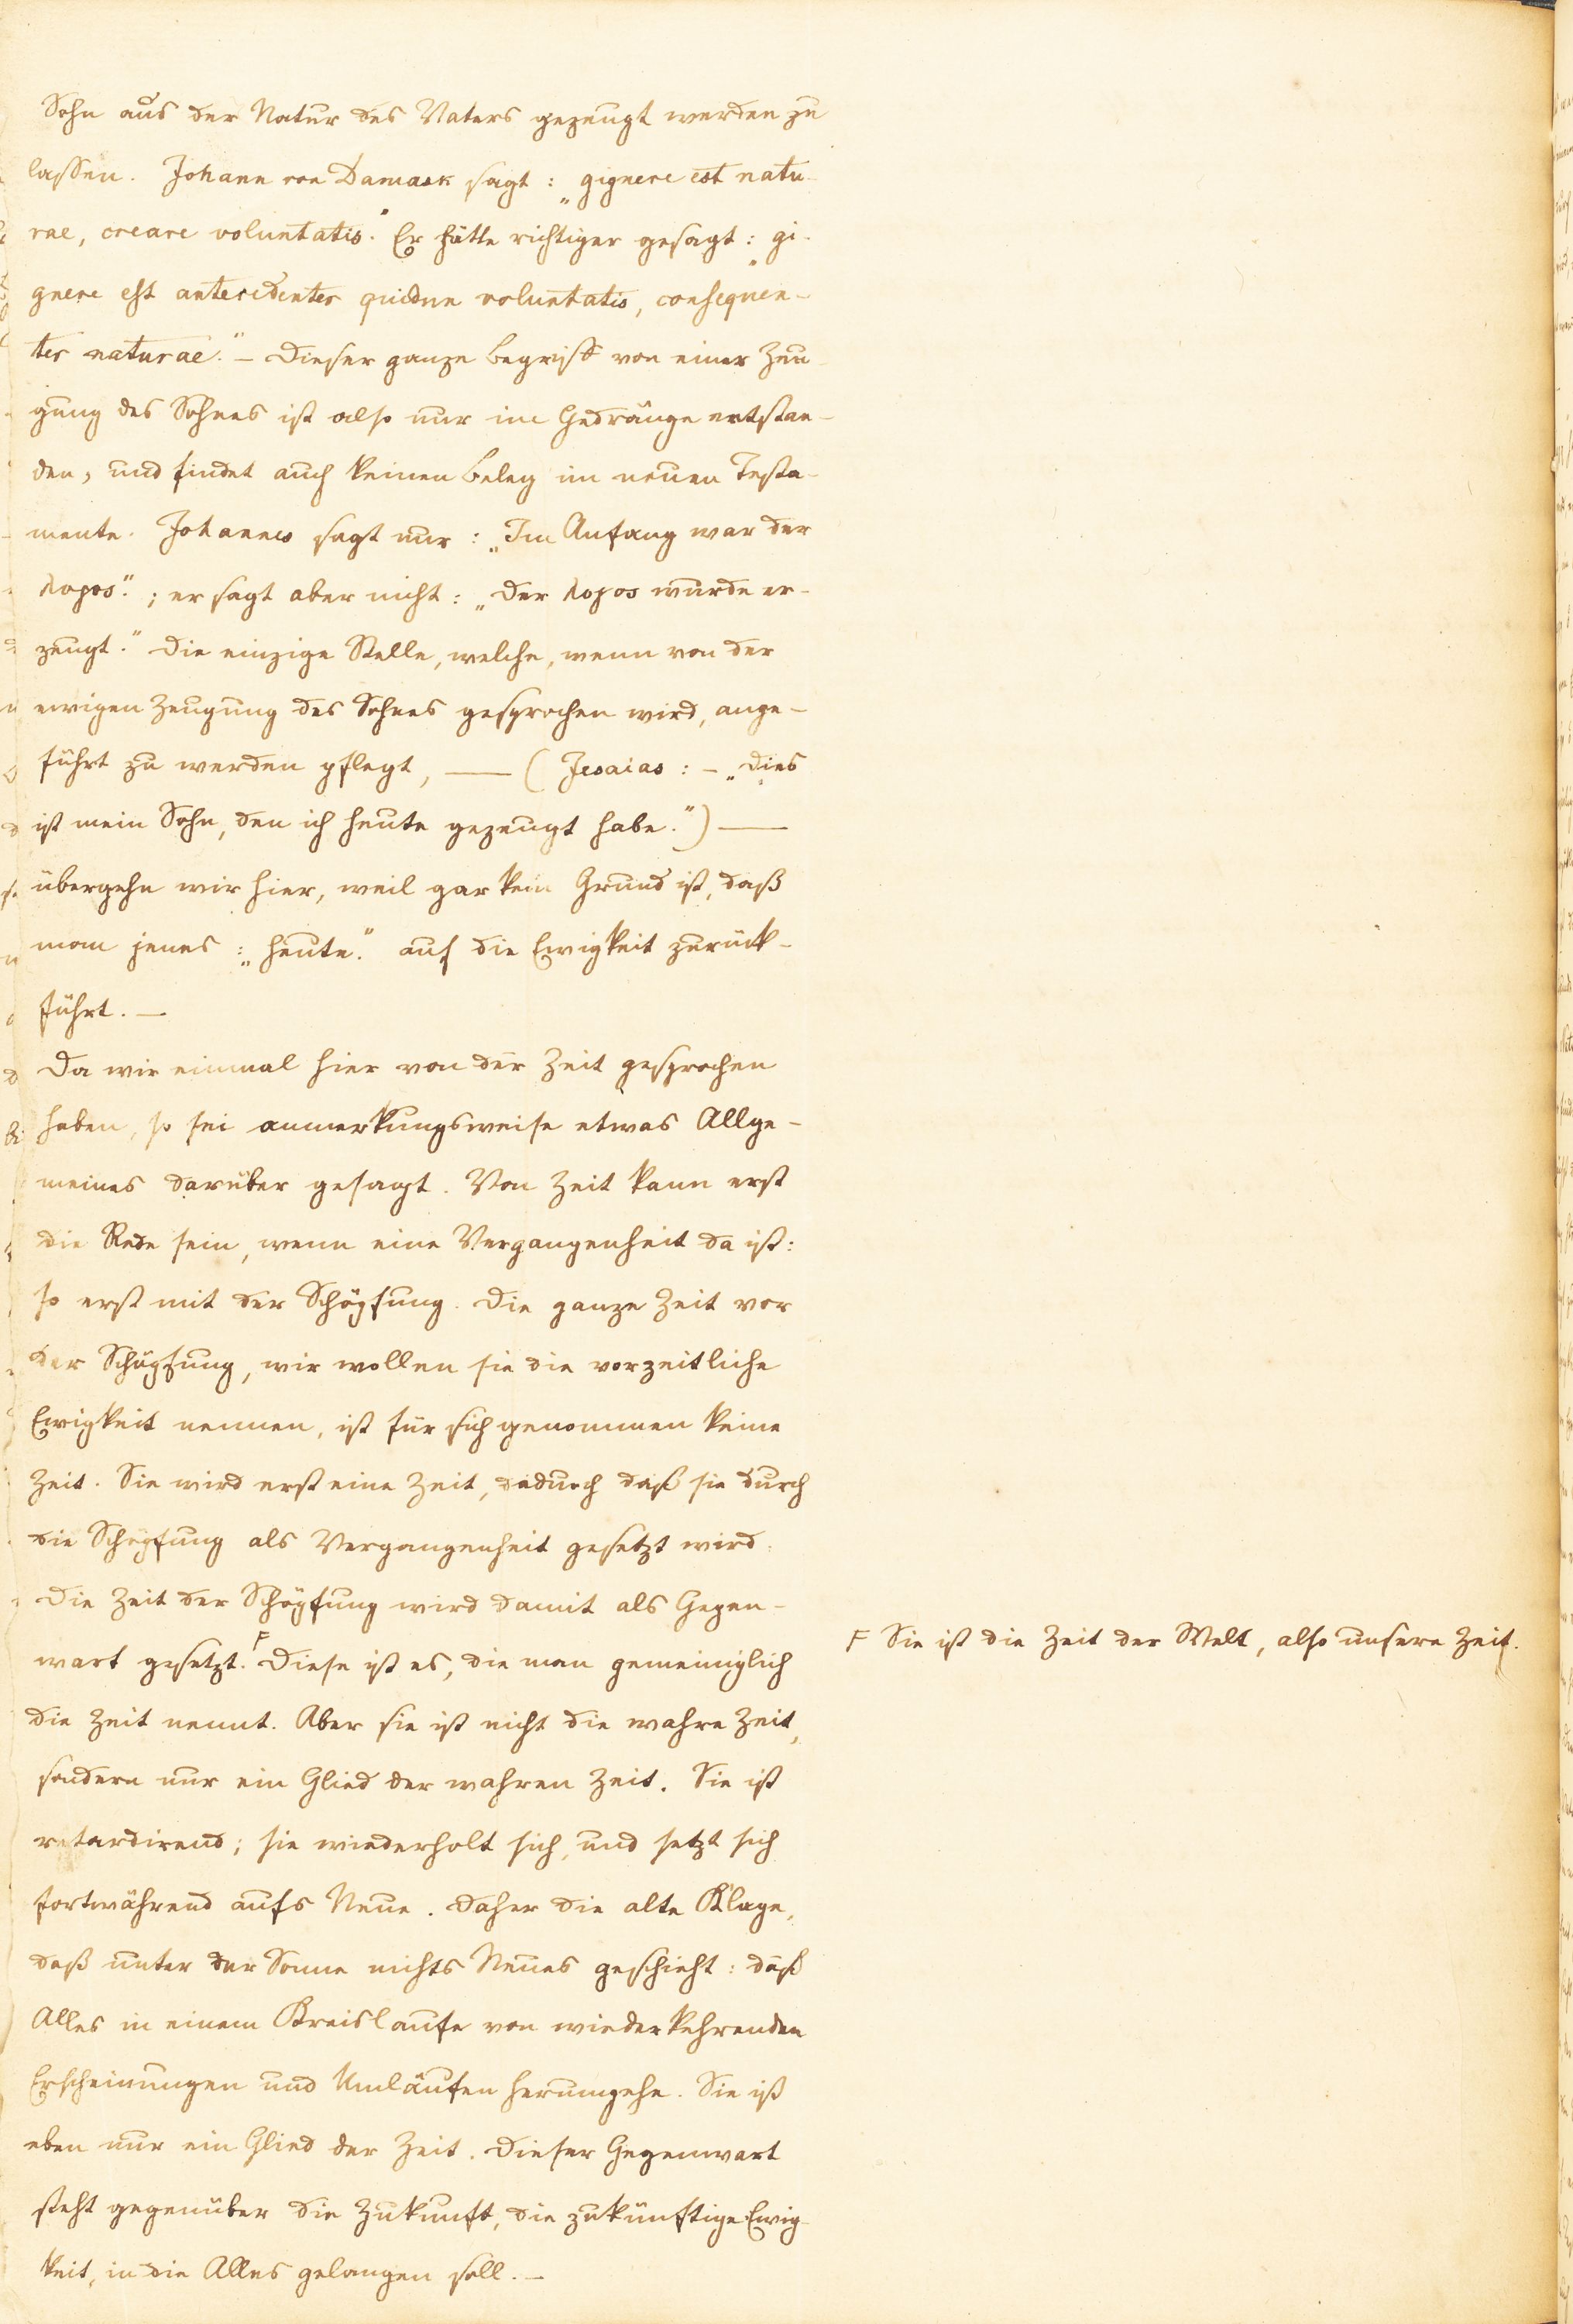 Sohn aus der Natur des Vaters gezeugt werden zu
lassen. Johann von Damask sagt: „gignere est natu-
rae, creare voluntatis." Er hätte richtiger gesagt: „gi-
gnere est antecedenter quidem voluntatis, consequen-
ter naturae." – Dieser ganze Begriff von einer Zeu-
gung des Sohnes ist also nur im Gedränge entstan-
den, und findet auch keinen Beleg im neuen Testa-
mente. Johannes sagt nur: „Im Anfang war der
λογος."; er sagt aber nicht: „Der λογος wurde er-
zeugt." Die einzige Stelle, welche, wenn von der
ewigen Zeugung des Sohnes gesprochen wird, ange-
führt zu werden pflegt, — (Jesaias: – „Dies
ist mein Sohn, den ich heute gezeugt habe.") —
übergehn wir hier, weil gar kein Grund ist, daß
man jenes: „heute." auf die Ewigkeit zurück-
führt. —
Da wir einmal hier von der Zeit gesprochen
haben, so sei anmerkungsweise etwas Allge-
meines darüber gesagt. Von Zeit kann erst
die Rede sein, wenn eine Vergangenheit da ist:
so erst mit der Schöpfung. Die ganze Zeit vor
der Schöpfung, wir wollen sie die vorzeitliche
Ewigkeit nennen, ist für sich genommen keine
Zeit. Sie wird erst eine Zeit, dadurch daß sie durch
die Schöpfung als Vergangenheit gesetzt wird.
Die Zeit der Schöpfung wird damit als Gegen-
wart gesetzt. F Diese ist es, die man gemeiniglich
F Sie ist die Zeit der Welt, also unsere Zeit.
die Zeit nennt. Aber sie ist nicht die wahre Zeit,
sondern nur ein Glied der wahren Zeit. Sie ist
retardirend; sie wiederholt sich, und setzt sich
fortwährend aufs Neue. Daher die alte Klage,
daß unter der Sonne nichts Neues geschieht: daß
Alles in einem Kreislaufe von wiederkehrenden
Erscheinungen und Umläufen herumgehe. Sie ist
eben nur ein Glied der Zeit. Dieser Gegenwart
steht gegenüber die Zukunft, die zukünftige Ewig-
keit, in die Alles gelangen soll. –